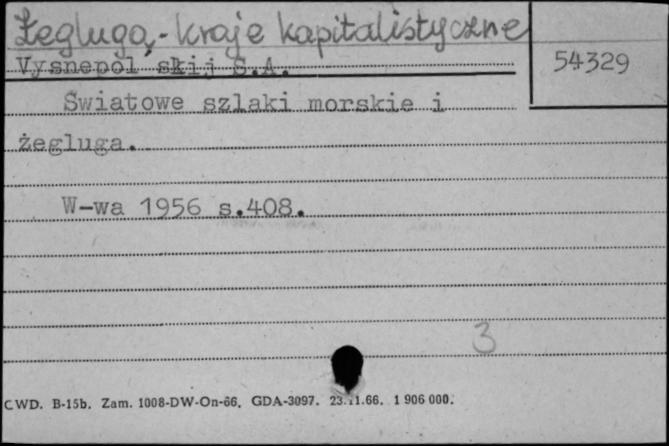 Żegluga - kraje kapitalistyczne
Vysnepol´skij S.A.
54329
Światowe szlaki morskie i
żegluga.
W-wa 1956 s.408.
3
CWD. B-15b. Zam. 1008-DW-On-66. GDA-3097. 23.11.66. 1 906 000.